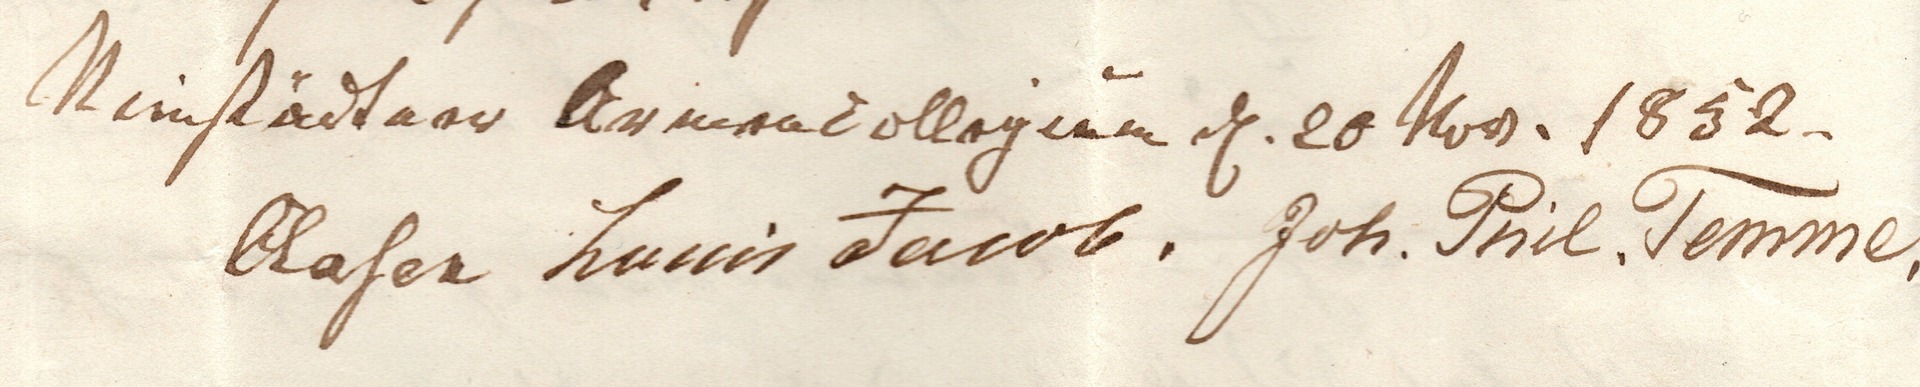 Neustädter Armencollegium d. 20 Nov. 1852.
Louis Jacob. Joh. Phil. Temme.